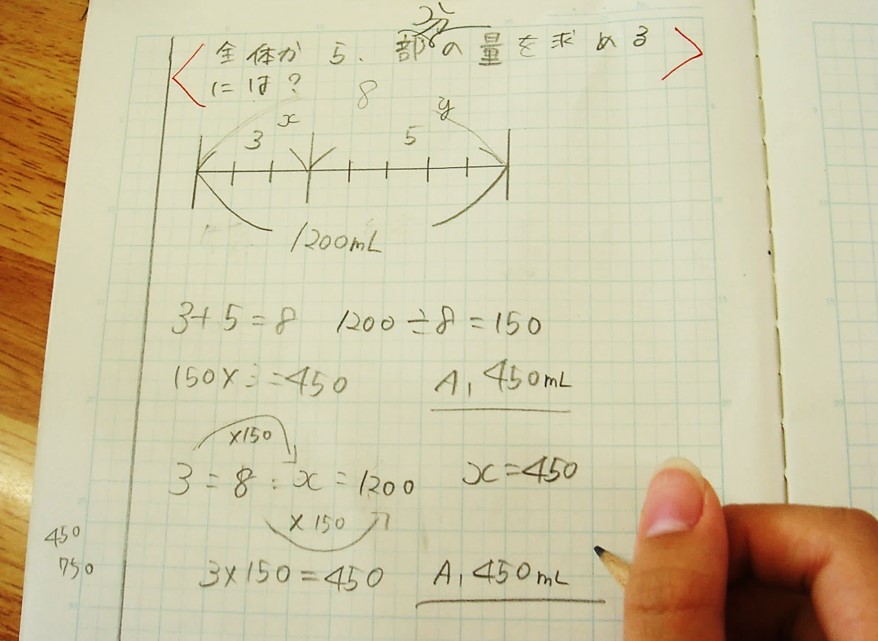 分
全体から、部の量を求める
には?
8
x y
3 5
1200mL
3+5=8 1200÷8=150
150×3=450 A,450mL
×150
3=8:x=1200 x=450
×150
450
750
3×150=450 A,450mL